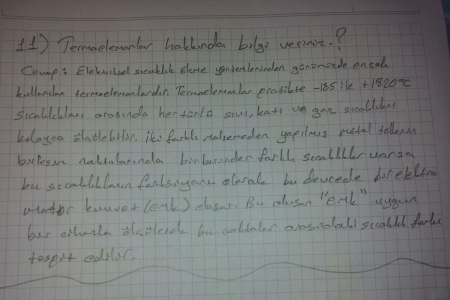 11) Termoelemanlar hakkında bilgi veriniz.?
Cevap: Elektriksel sıcaklık ölçme yöntemlerinden günümüzde en çok
kullanılan termoelemanlardır. Termoelemanlar pratikte -185 ile +1820°C
sıcaklıkları arasında her türlü sıvı, katı ve gaz sıcaklıkları
kolayca ölçülebilir. İki farklı malzemeden yapılmış metal tellerin
birleşim noktalarında birbirinden farklı sıcaklıklar varsa
bu sıcaklıkların fonksiyonu olarak bu devrede bir elektro
motor kuvvet (emk) oluşur. Bu oluşan "emk" uygun
bir cihazla ölçülerek bu noktalar arasındaki sıcaklık farkı
tespit edilir.